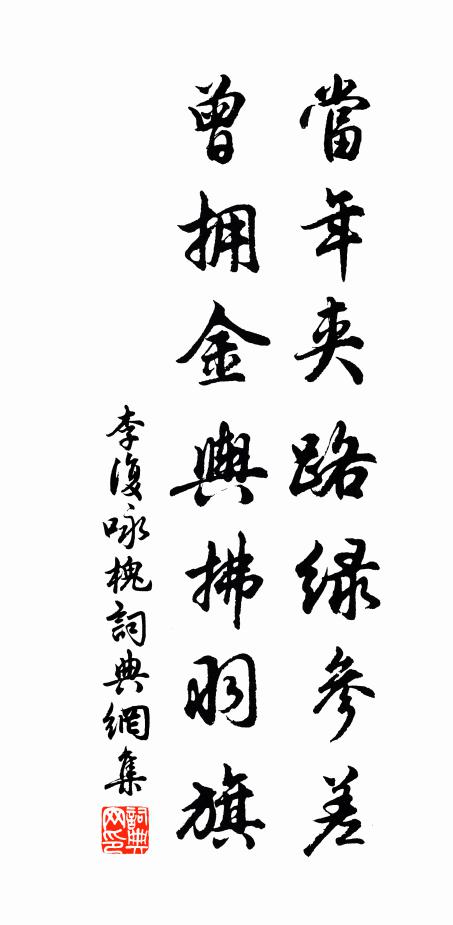 當年夾路緑參差
曾拥金輿拂羽旗
李復咏槐詞典網集
詞典网印